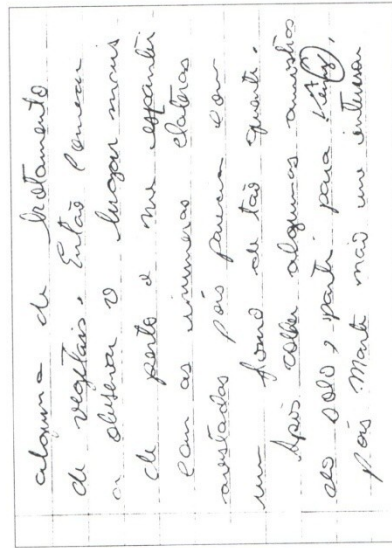 alguma de brotamento
de vegetais. Então comecei
a observar o lugar mais
de perto e me espantei
com as inumeras crateras
avistadas pois parecia com
um forno de tão quente.
Após colher algumas amostras
do solo, parti para
pois Marte não me interessou